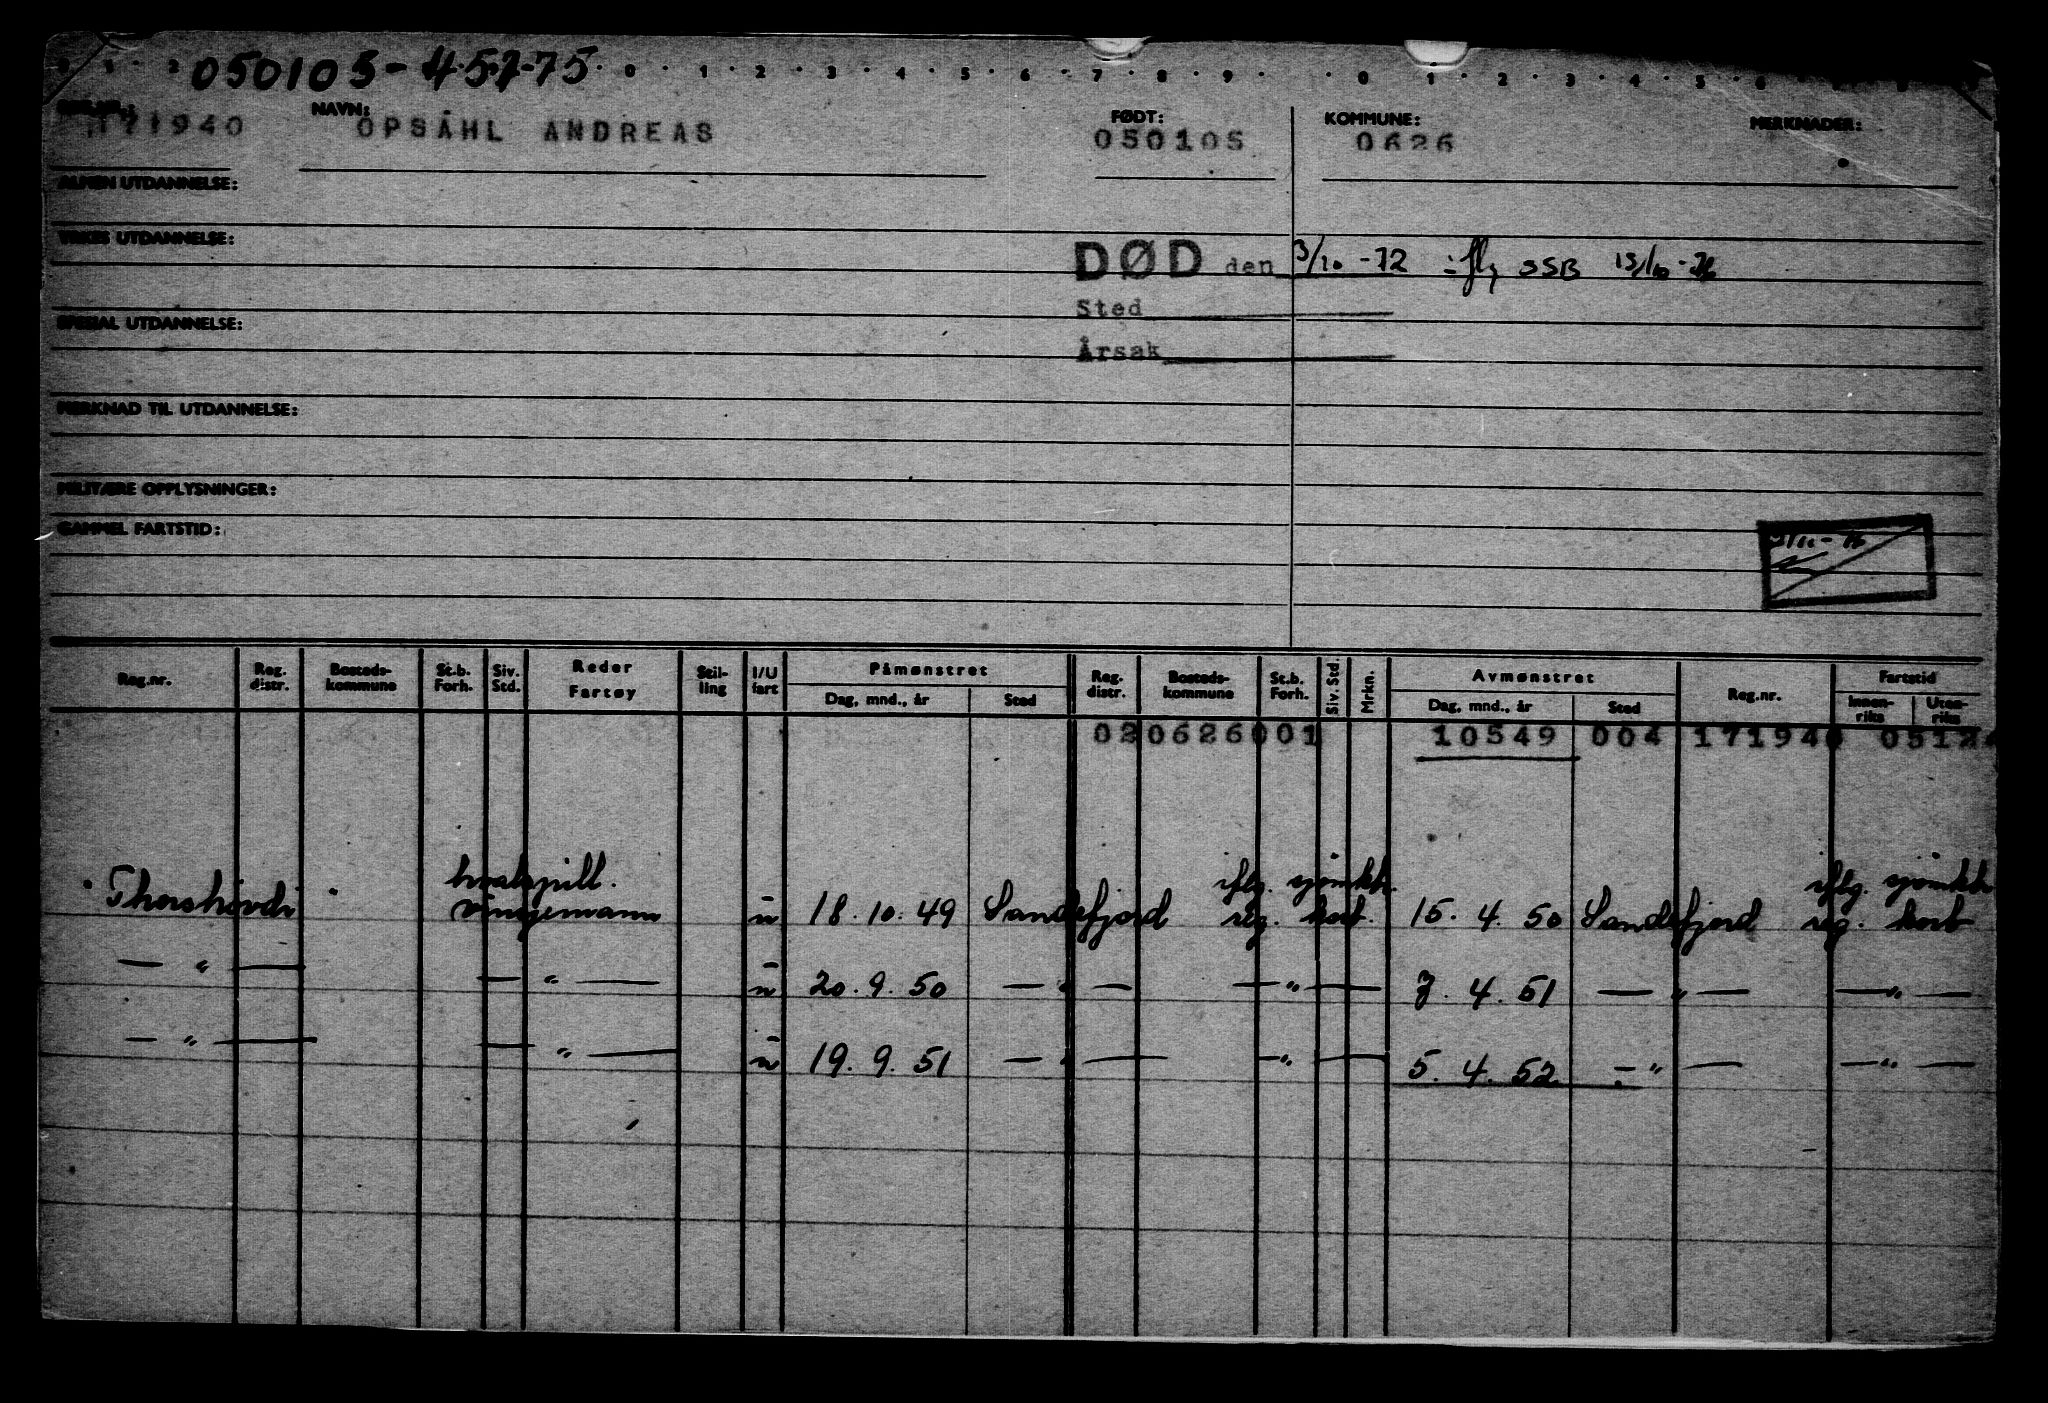 050105-45775
0 1 2 0 1 2 3 4 5 6 7 8 9 0 1 2 3 4 5 6
NAVN: FØDT: KOMMUNE: MERKNADER:
171940 OPSÅHL ANDREAS 050105 0626
ALMEN UTDANNELSE:
YRKES UTDANNELSE:
DØD den 3/10-72 ifly SSB 15/10-76
Sted
SPESIAL UTDANNELSE:
Årsak
MERKNAD TIL UTDANNELSE:
MILITÆRE OPPLYSNINGER:
GAMMEL FARTSTID:
Reg.nr. Reg. distr. Bosteds-kommune St.b. Forh. Siv. Std. Reder Fartøy Stil-ling I/U fart Påmønstret Dag, mnd., år Sted Reg. distr. Bosteds-kommune St.b. Forh. Siv. Std. Mrkn. Avmønstret Dag, mnd., år Sted Reg.nr. Fartstid Innen-riks Uten-riks
02 0626 001 10549 004 171940 0512
hvalspill. iflg. sjømkk. iflg. sjømkk
Thorshövdi vingemann ū 18.10.49 Sandefjord reg. kort. 15.4.50 Sandefjord reg. kort
— " — — " — ū 20.9.50 — " — — " — 7.4.51 — " — — " —
— " — — " — ū 19.9.51 — " — — " — 5.4.52 — " — — " —